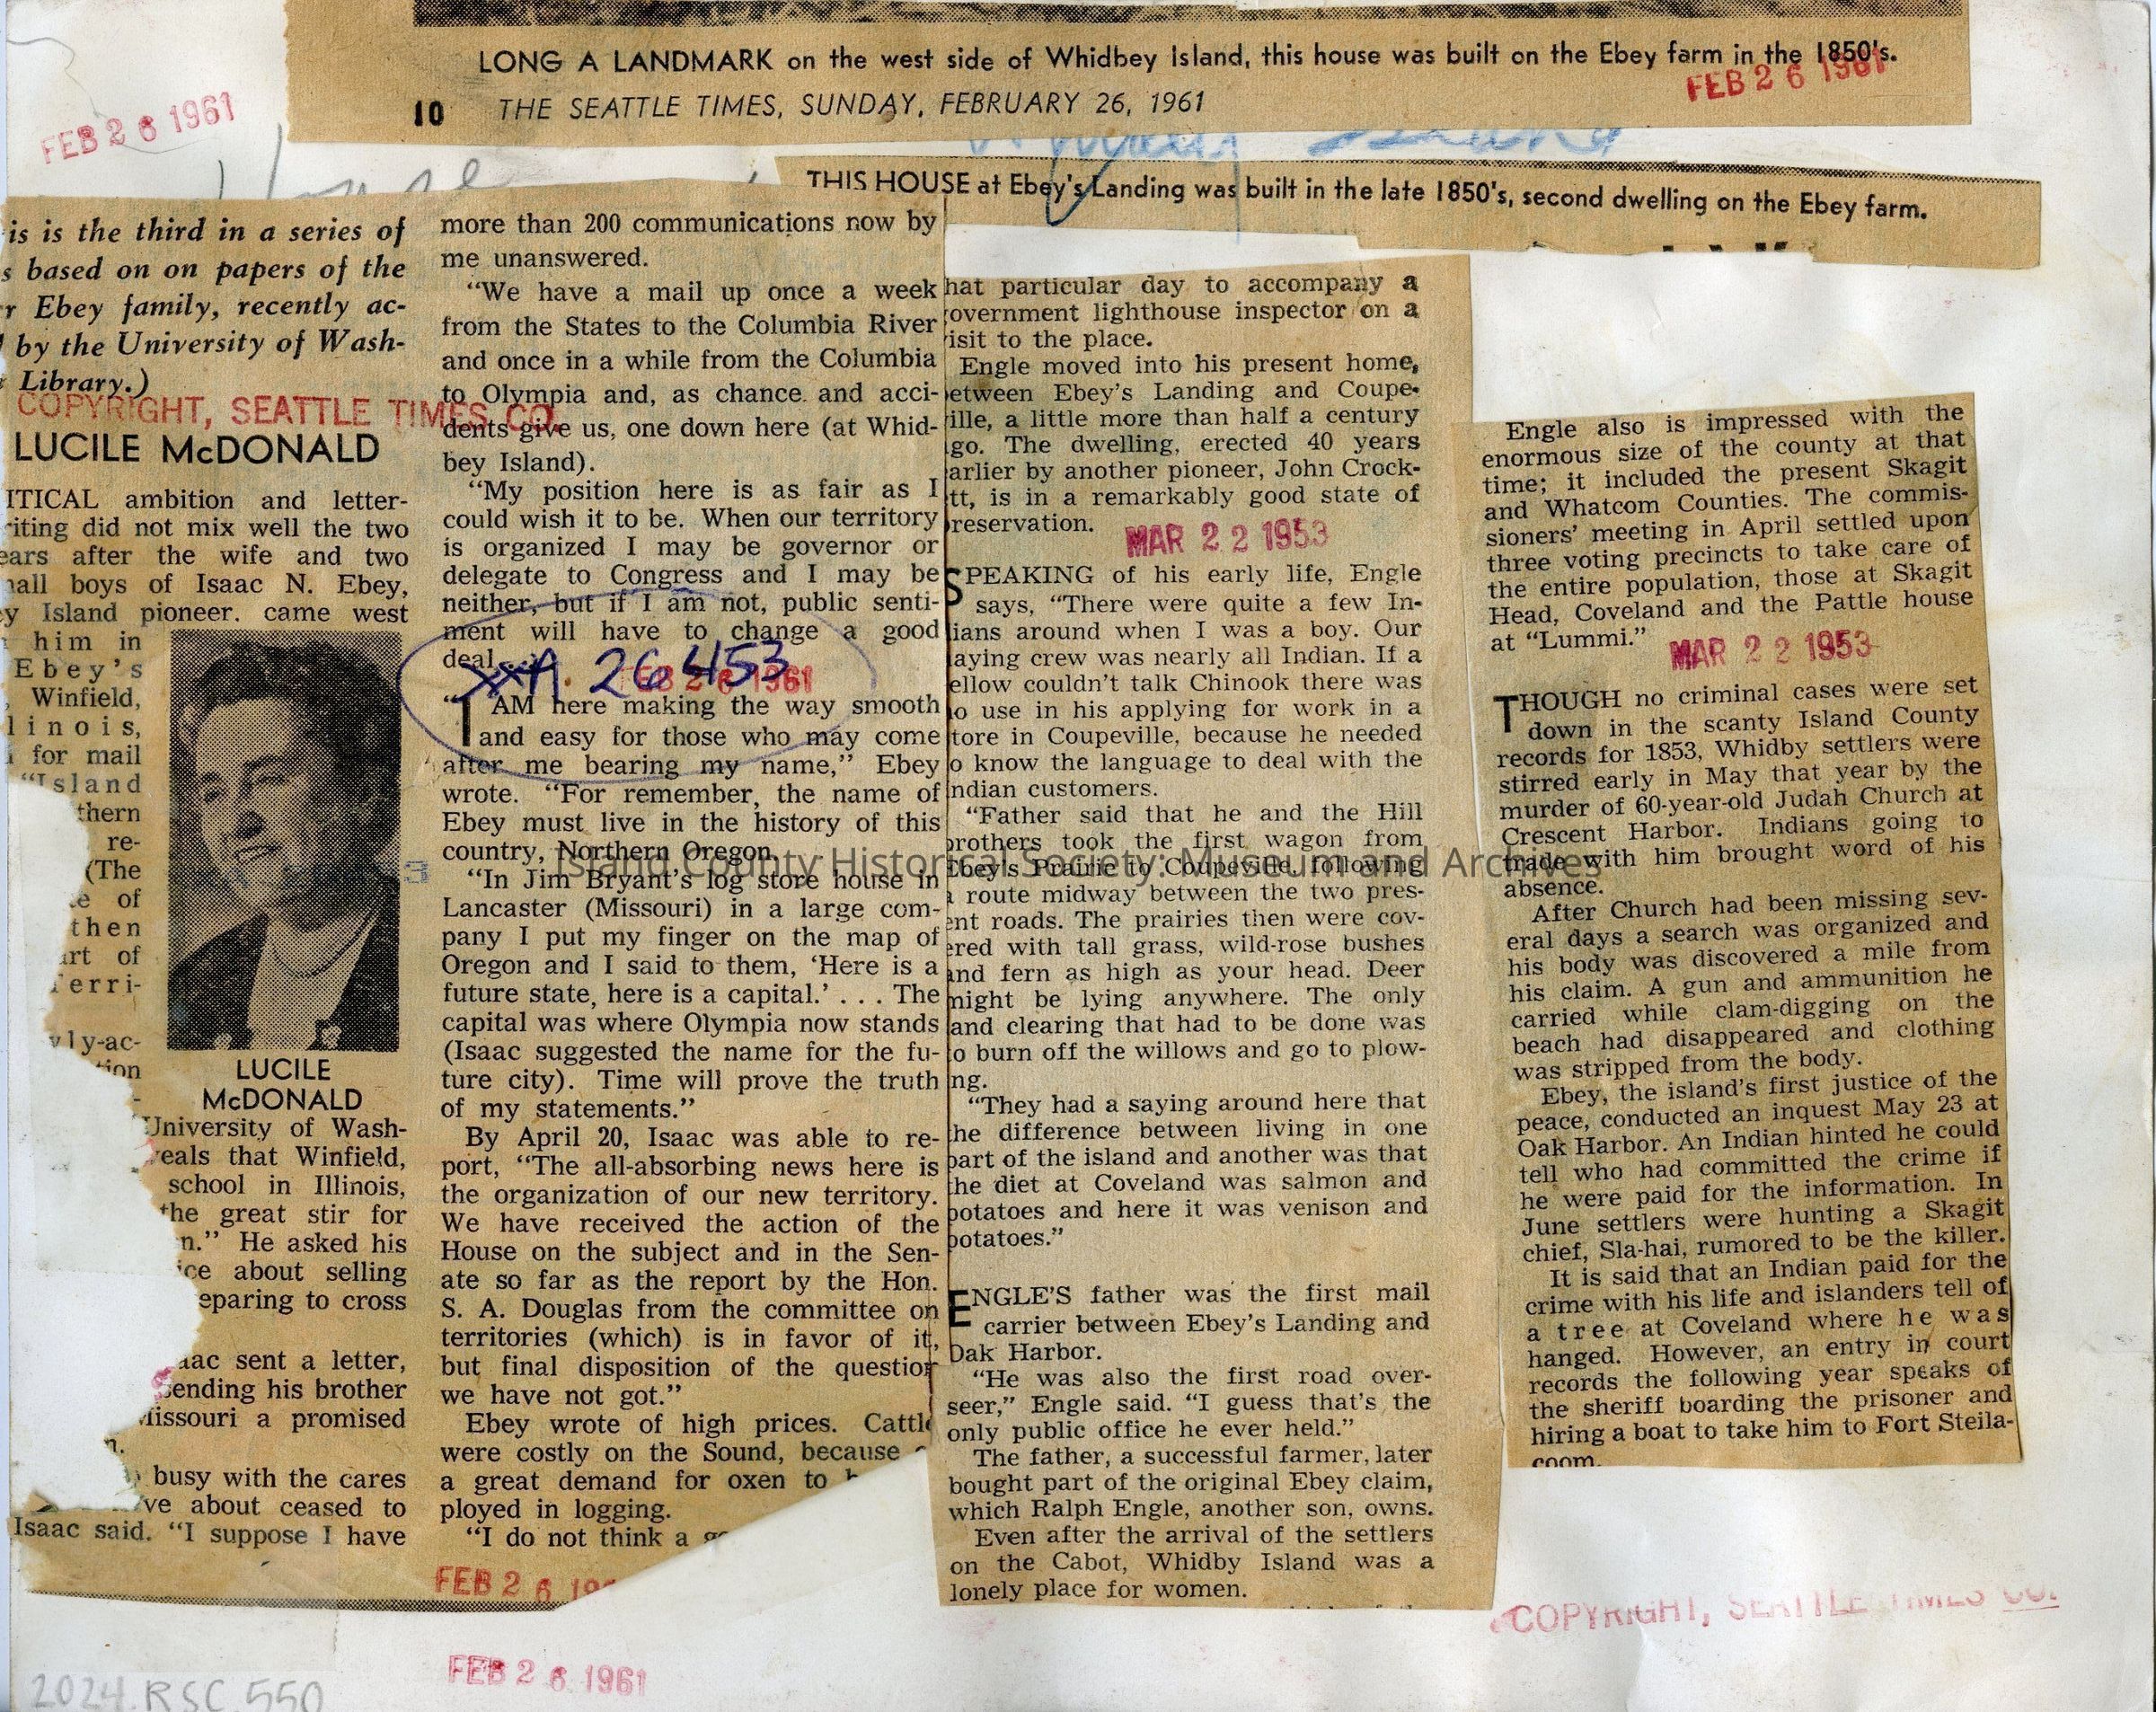 LONG A LANDMARK on the west side of Whidbey Island, this house was built on the Ebey farm in the 1850's.
FEB 26 1961
10 THE SEATTLE TIMES, SUNDAY, FEBRUARY 26, 1961
FEB 26 1961
House
THIS HOUSE at Ebey's Landing was built in the late 1850's, second dwelling on the Ebey farm.
is is the third in a series of
s based on on papers of the
r Ebey family, recently ac-
by the University of Wash-
Library.)
COPYRIGHT, SEATTLE TIMES CO.
LUCILE McDONALD
ITICAL ambition and letter-
riting did not mix well the two
ears after the wife and two
nall boys of Isaac N. Ebey,
ey Island pioneer, came west
him in
Ebey's
, Winfield,
linois,
for mail
"Island
thern
re-
(The
e of
then
art of
Terri-
vly-ac-
tion
LUCILE
McDONALD
University of Wash-
veals that Winfield,
school in Illinois,
the great stir for
n." He asked his
ice about selling
eparing to cross
aac sent a letter,
sending his brother
Missouri a promised
n.
busy with the cares
ve about ceased to
Isaac said. "I suppose I have
more than 200 communications now by
me unanswered.
"We have a mail up once a week
from the States to the Columbia River
and once in a while from the Columbia
to Olympia and, as chance and acci-
dents give us, one down here (at Whid-
bey Island).
"My position here is as fair as I
could wish it to be. When our territory
is organized I may be governor or
delegate to Congress and I may be
neither, but if I am not, public senti-
ment will have to change a good
deal . . .
XXA. 26453
FEB 26 1961
"I AM here making the way smooth
and easy for those who may come
after me bearing my name," Ebey
wrote. "For remember, the name of
Ebey must live in the history of this
country, Northern Oregon.
"In Jim Bryant's log store house in
Lancaster (Missouri) in a large com-
pany I put my finger on the map of
Oregon and I said to them, 'Here is a
future state, here is a capital.' . . . The
capital was where Olympia now stands
(Isaac suggested the name for the fu-
ture city). Time will prove the truth
of my statements."
By April 20, Isaac was able to re-
port, "The all-absorbing news here is
the organization of our new territory.
We have received the action of the
House on the subject and in the Sen-
ate so far as the report by the Hon.
S. A. Douglas from the committee on
territories (which) is in favor of it,
but final disposition of the question
we have not got."
Ebey wrote of high prices. Cattle
were costly on the Sound, because
a great demand for oxen to
ployed in logging.
"I do not think a
FEB 26 19
FEB 26 1961
hat particular day to accompany a
overnment lighthouse inspector on a
isit to the place.
Engle moved into his present home,
etween Ebey's Landing and Coupe-
ille, a little more than half a century
go. The dwelling, erected 40 years
arlier by another pioneer, John Crock-
tt, is in a remarkably good state of
reservation.
MAR 22 1953
SPEAKING of his early life, Engle
says, "There were quite a few In-
dians around when I was a boy. Our
aying crew was nearly all Indian. If a
ellow couldn't talk Chinook there was
o use in his applying for work in a
tore in Coupeville, because he needed
o know the language to deal with the
ndian customers.
"Father said that he and the Hill
brothers took the first wagon from
Ebey's Prairie to Coupeville, following
a route midway between the two pres-
ent roads. The prairies then were cov-
ered with tall grass, wild-rose bushes
and fern as high as your head. Deer
might be lying anywhere. The only
land clearing that had to be done was
to burn off the willows and go to plow-
ing.
"They had a saying around here that
the difference between living in one
part of the island and another was that
the diet at Coveland was salmon and
potatoes and here it was venison and
potatoes."
ENGLE'S father was the first mail
carrier between Ebey's Landing and
Oak Harbor.
"He was also the first road over-
seer," Engle said. "I guess that's the
only public office he ever held."
The father, a successful farmer, later
bought part of the original Ebey claim,
which Ralph Engle, another son, owns.
Even after the arrival of the settlers
on the Cabot, Whidby Island was a
lonely place for women.
Engle also is impressed with the
enormous size of the county at that
time; it included the present Skagit
and Whatcom Counties. The commis-
sioners' meeting in April settled upon
three voting precincts to take care of
the entire population, those at Skagit
Head, Coveland and the Pattle house
at "Lummi."
MAR 22 1953
THOUGH no criminal cases were set
down in the scanty Island County
records for 1853, Whidby settlers were
stirred early in May that year by the
murder of 60-year-old Judah Church at
Crescent Harbor. Indians going to
trade with him brought word of his
absence.
After Church had been missing sev-
eral days a search was organized and
his body was discovered a mile from
his claim. A gun and ammunition he
carried while clam-digging on the
beach had disappeared and clothing
was stripped from the body.
Ebey, the island's first justice of the
peace, conducted an inquest May 23 at
Oak Harbor. An Indian hinted he could
tell who had committed the crime if
he were paid for the information. In
June settlers were hunting a Skagit
chief, Sla-hai, rumored to be the killer.
It is said that an Indian paid for the
crime with his life and islanders tell of
a tree at Coveland where he was
hanged. However, an entry in court
records the following year speaks of
the sheriff boarding the prisoner and
hiring a boat to take him to Fort Steila-
coom.
COPYRIGHT, SEATTLE TIMES CO.
Island County Historical Society: Museum and Archives
2024.RSC.550